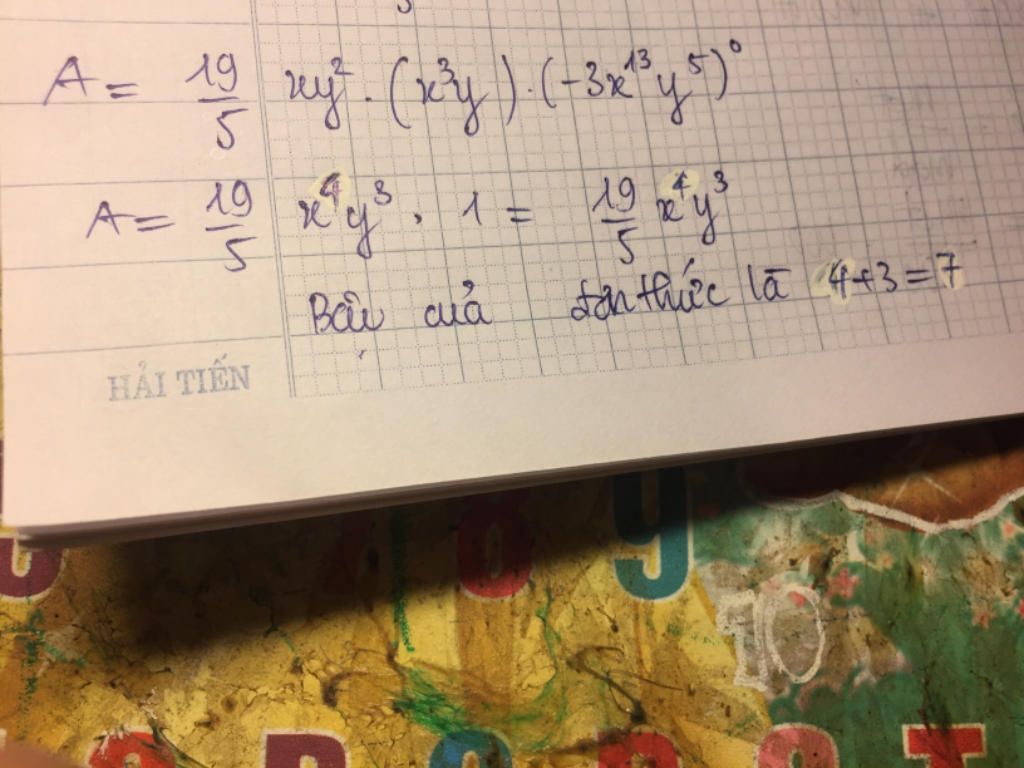 A = 19/5 xy². (x³y).(-3x¹³y⁵)⁰
A = 19/5 x⁴y³ . 1 = 19/5 x⁴y³
Bậc của đơn thức là 4+3=7
HẢI TIẾN
8 9
10